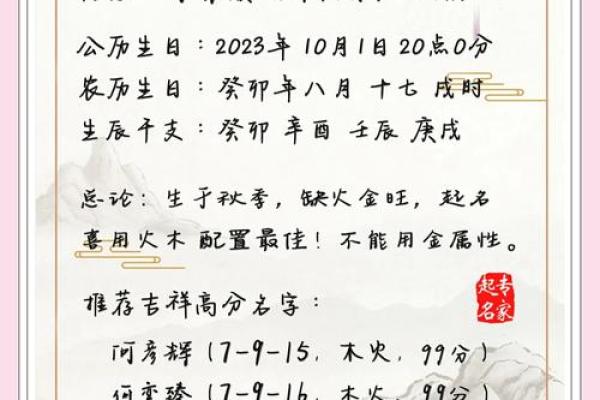 公历生日：2023年10月1日20点0分
农历生日：癸卯年八月 十七 戌时
生辰干支：癸卯 辛酉 壬辰 庚戌
总论：生于秋季，缺火金旺，起名
喜用火木 配置最佳！不能用金属性。
专家
起名
推荐吉祥高分名字：
何彦辉（7-9-15，木火，99分）
何奕臻（7-9-16，木火，99分）